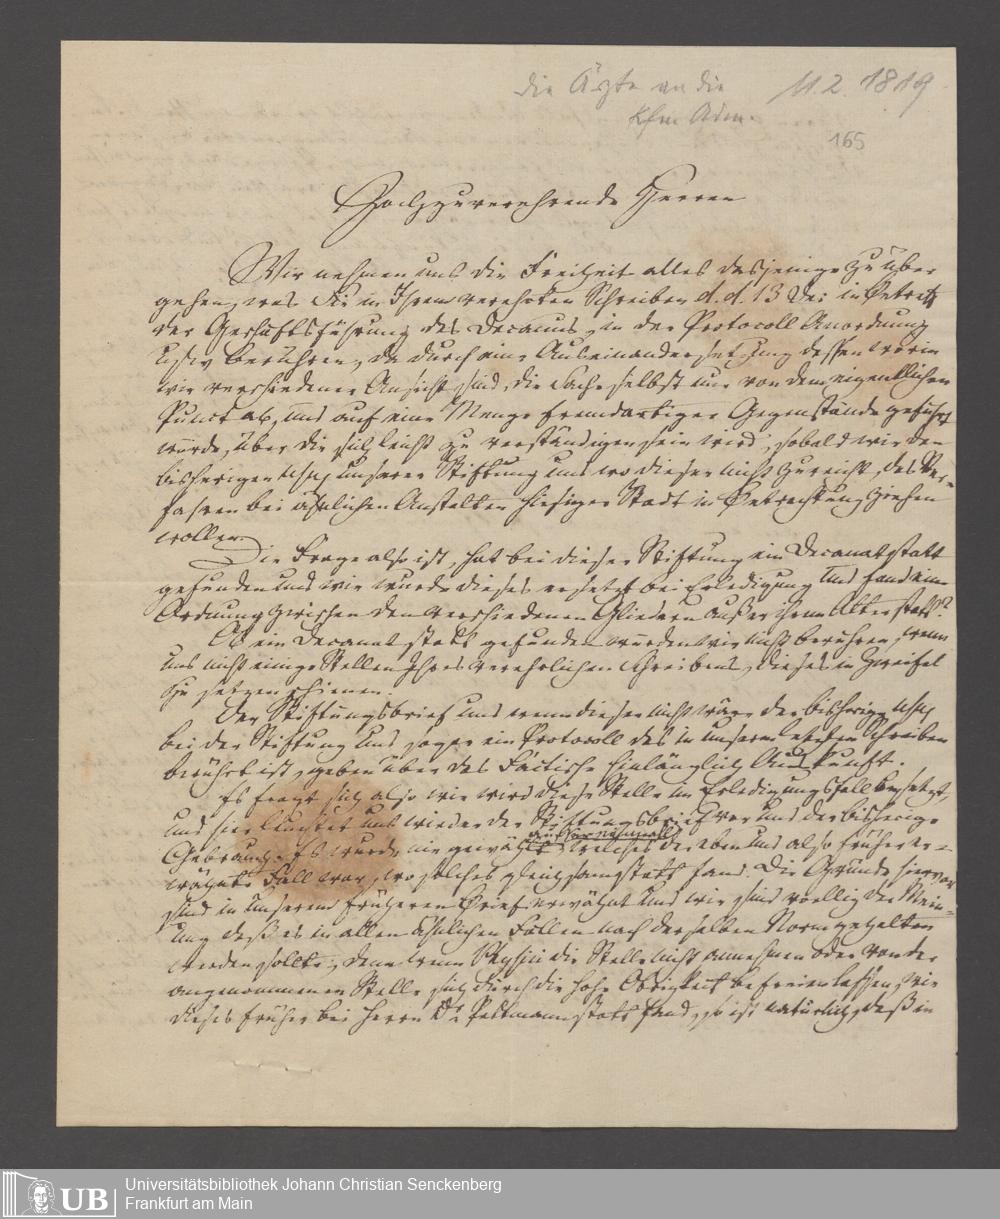 die Ärzte an die 11.2.1819
Adm.
165
Hochzuverehrende Herren
Wir nehmen uns die Freiheit alles dasjenige zu über
gehen, was Sie in Ihrem verehrten Schreiben d. d. 13 Dec in Betreff
der Geschäftsführung des Decanus, in der Protocoll Anordnung
usw berühren, da durch eine Auseinandersetzung dessen worin
wir verschiedener Ansicht sind, die Sache selbst nur von dem eigentlichen
Punct ab, und auf eine Menge fremdartiger Gegenstände geführt
würde, über die sich leicht zu verständigen sein wird, sobald wir den
bisherigen Usus unserer Stiftung und wo dieser nicht zureicht, das Ver-
fahren bei ähnlichen Anstalten hiesiger Stadt in Betrachtung ziehen
wollen.
Die Frage also ist, hat bei dieser Stiftung ein Decanat statt
gefunden und wie wurde dieses ersetzt bei Erledigung und fand eine
Ordnung zwischen den verschiedenen Gliedern außer ihrem Alter statt?
Ob ein Decanat statt gefunden würden wir nicht berühren, wenn
uns nicht einige Stellen Ihres verehrlichen Schreibens, dieses in Zweifel
zu setzen schienen.
Der Stiftungsbrief und wenn dieser nicht wäre der bisherige Usus
bei der Stiftung und sogar ein Protocoll das in unserm letzten Schreiben
berührt ist, geben über das Factische hinlänglich Auskunft.
Es fragt sich also wie wird diese Stelle im Erledigungsfall besetzt,
und hier leuchtet uns wieder der Stiftungsbrief vor und der bisherige
Gebrauch. Es wurde nie gewählt welches der eben und also früher er-
wähnte Fall war, wo solches gleichsam statt fand. Die Gründe hiervor
sind in unserem früheren Brief erwähnt und wir sind voellig der Mein-
ung daß es in allen ähnlichen Fällen nach derselben Norm gehalten
werden sollte; denn wenn Physici die Stelle nicht annehmen oder von der
angenommenen Stelle sich durch die hohe Obrigkeit befreien lassen, wie
dieses früher bei Herrn Dr statt fand, so ist natürlich, daß in
UB Universitätsbibliothek Johann Christian Senckenberg
Frankfurt am Main